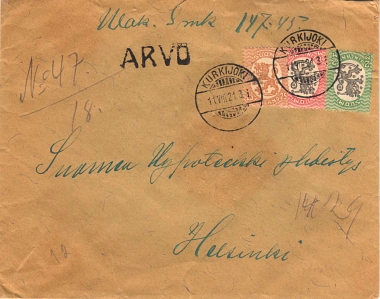 Wak. Smk 147:45
ARVO
No 47
18.
KURKIJOKI
11.VIII.21.3.I.
KURKIJOKI
Suomen Hypoteeki yhdistys
Helsinki